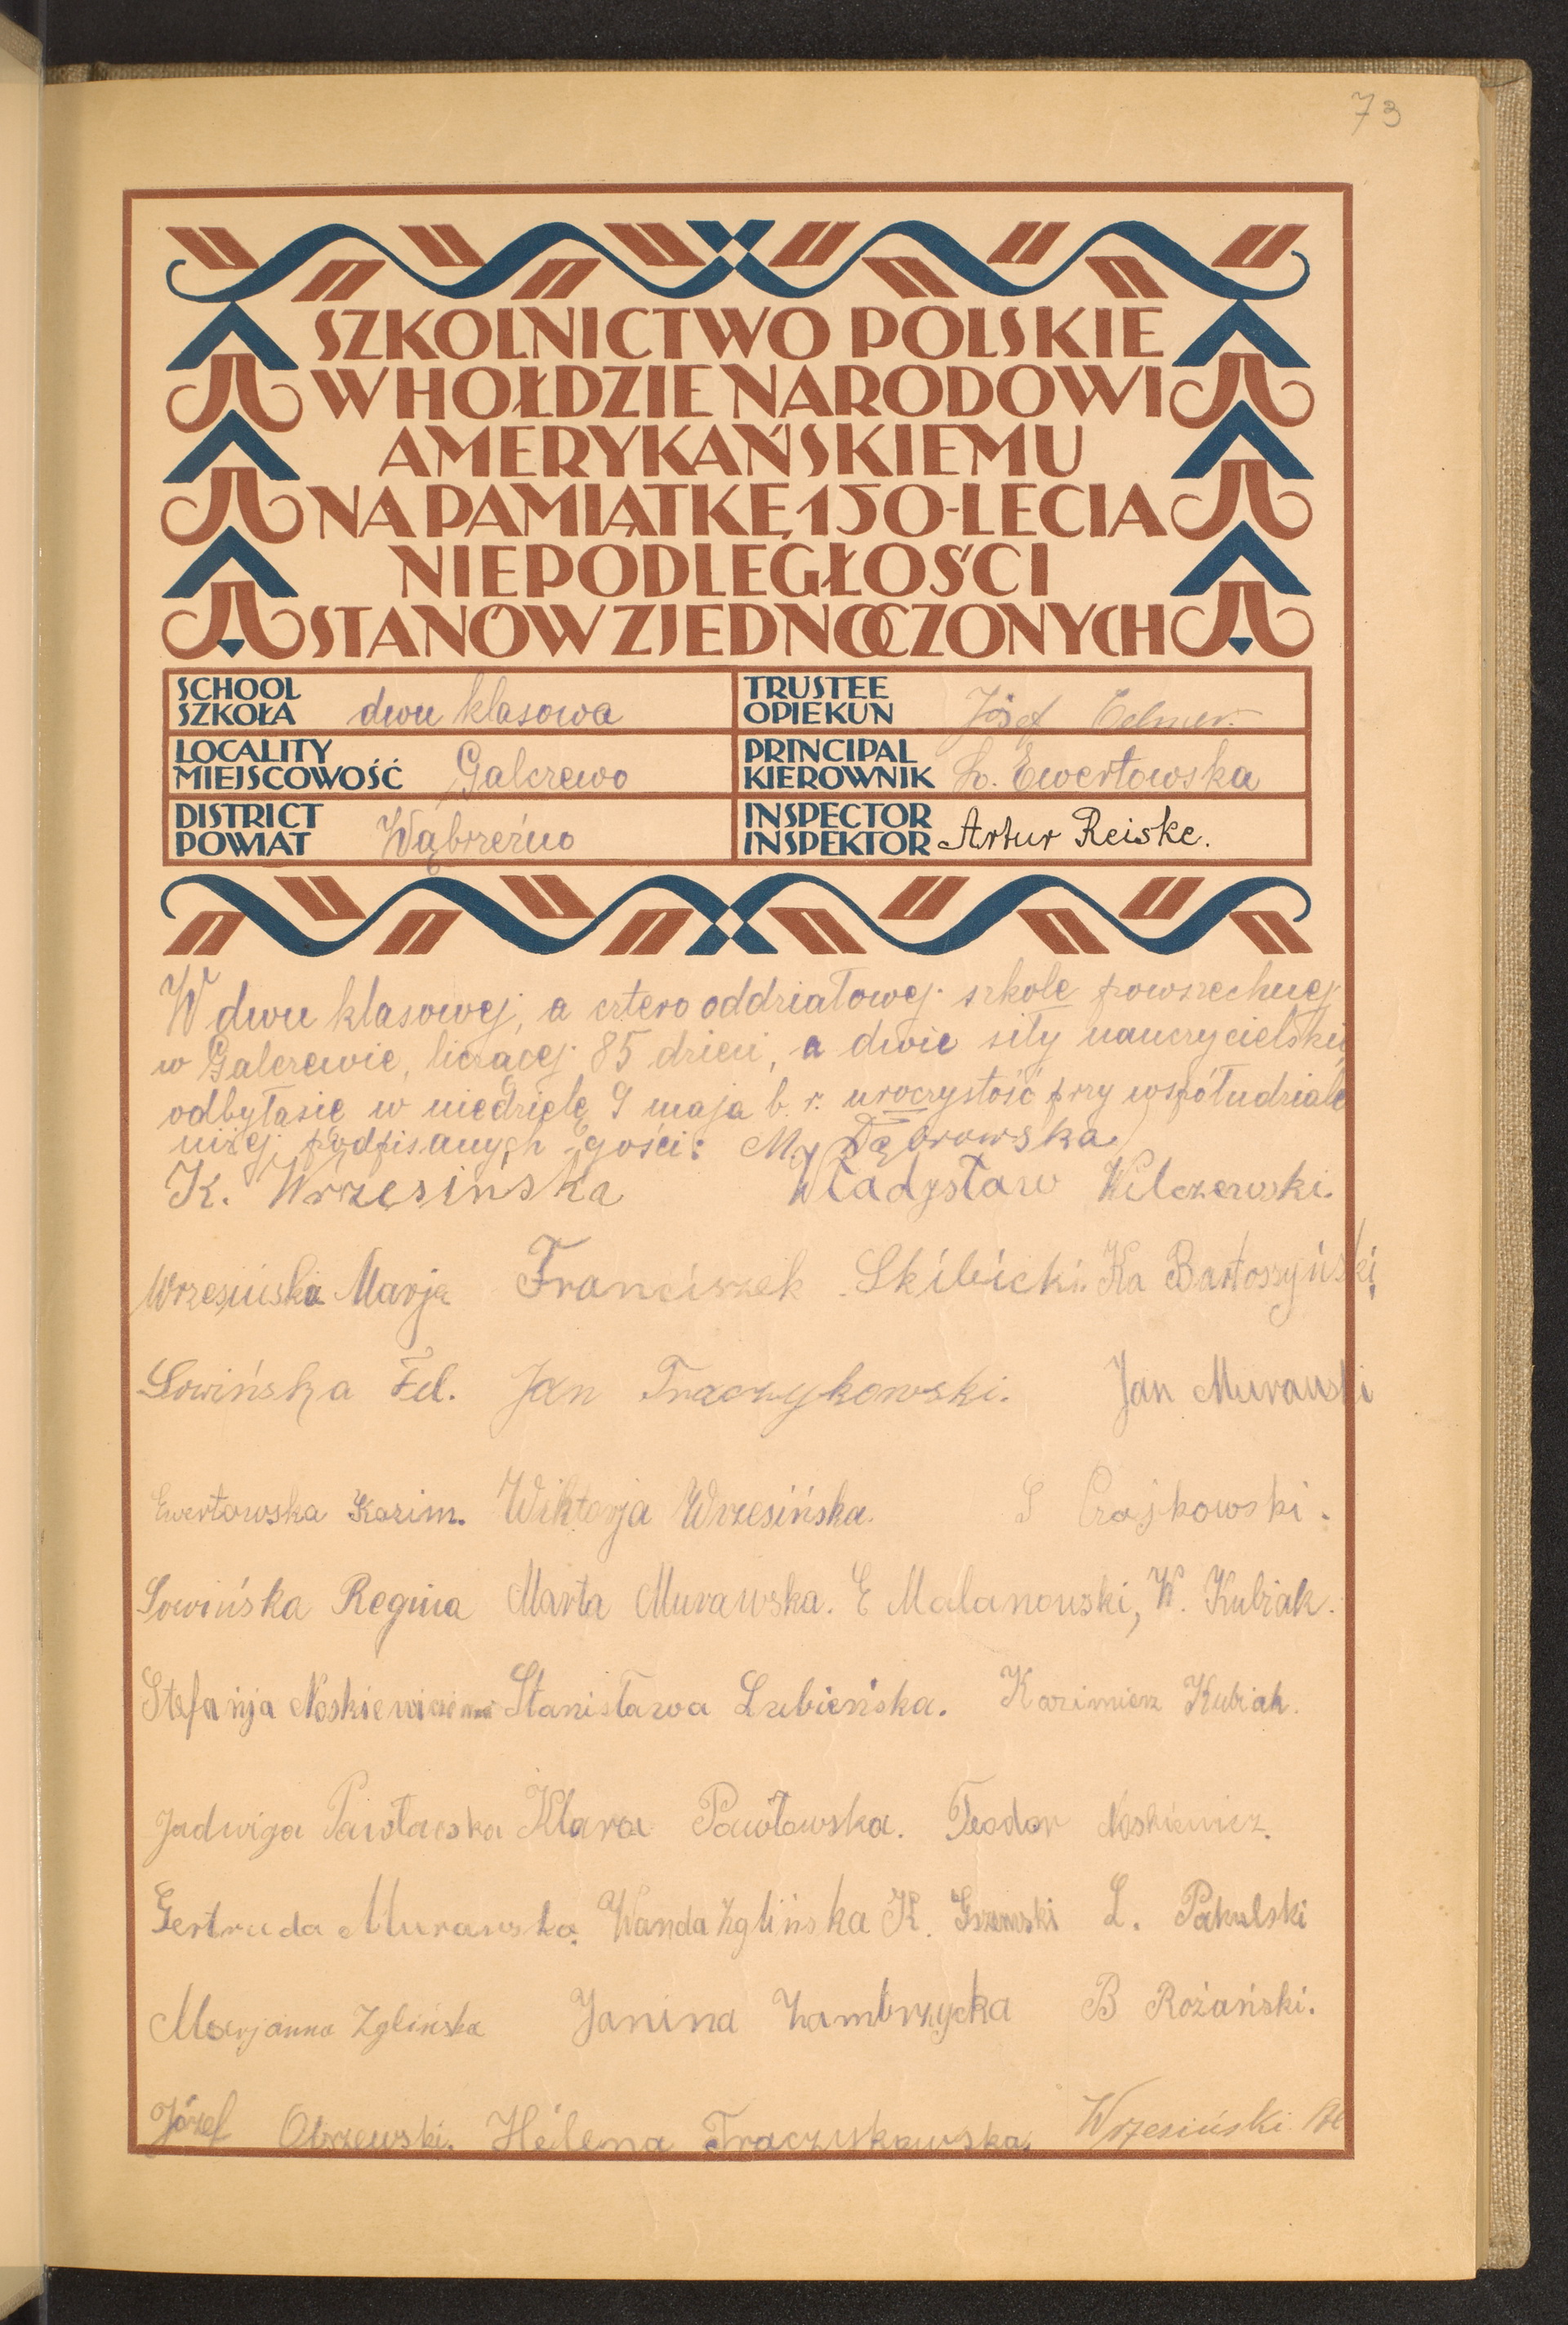 73
SZKOLNICTWO POLSKIE
W HOŁDZIE NARODOWI
AMERYKAŃSKIEMU
NA PAMIĄTKĘ 150-LECIA
NIEPODLEGŁOŚCI
STANÓW ZJEDNOCZONYCH
SCHOOL
SZKOŁA dwu klasowa
TRUSTEE
OPIEKUN Józef Celmer.
LOCALITY
MIEJSCOWOŚĆ Galczewo
PRINCIPAL
KIEROWNIK Ł. Ewertowska
DISTRICT
POWIAT Wąbrzeźno
INSPECTOR
INSPEKTOR Artur Reiske.
W dwu klasowej, a cztero oddziałowej szkole powszechnej
w Galczewie, liczącej 85 dzieci, a dwie siły nauczycielskie
odbyłasię w niedzielę 9 maja b. r. uroczystość przy współudziale
niżej podpisanych gości: M. Dąbrowska
K. Wrzesińska Władysław Wilczewski.
Wrzesińska Marja Franciszek Skibicki. Ka Bartoszyński
Sowińska Fel. Jan Traczykowski. Jan Murawski
Ewertowska Kazim. Wiktorja Wrzesińska. S Czajkowski.
Sowińska Regina Marta Murawska. E Malanowski, W. Kubiak.
Stefanja Noskiewiczówna Stanisława Lubieńska. Kazimierz Kubiak.
Jadwiga Pawłowska Klara Pawłowska. Teodor Noskiewicz.
Gertruda Murawska. Wanda Zglińska K. L. Pakulski
Marjanna Zglińska Janina Zambrzycka B Rożański.
Józef Obrzewski. Helena Traczykowska. Wrzesiński